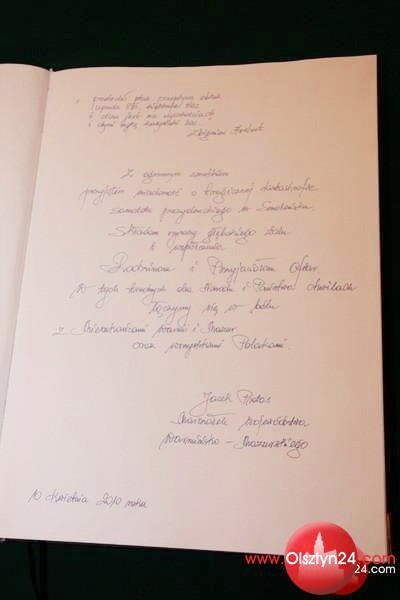 Zbigniew Herbert
Z ogromnym smutkiem
przyjąłem wiadomość o tragicznej katastrofie
samolotu prezydenckiego w Smoleńsku.
Składam wyrazy głębokiego żalu
i współczucia
Rodzinom i Przyjaciołom Ofiar.
W tych trudnych dla Narodu i Państwa chwilach
łączymy się w bólu
z Mieszkańcami Warmii i Mazur
oraz wszystkimi Polakami.
Jacek Protas
Marszałek Województwa
Warmińsko - Mazurskiego
10 kwietnia 2010 roku
www.Olsztyn24.com
24.com